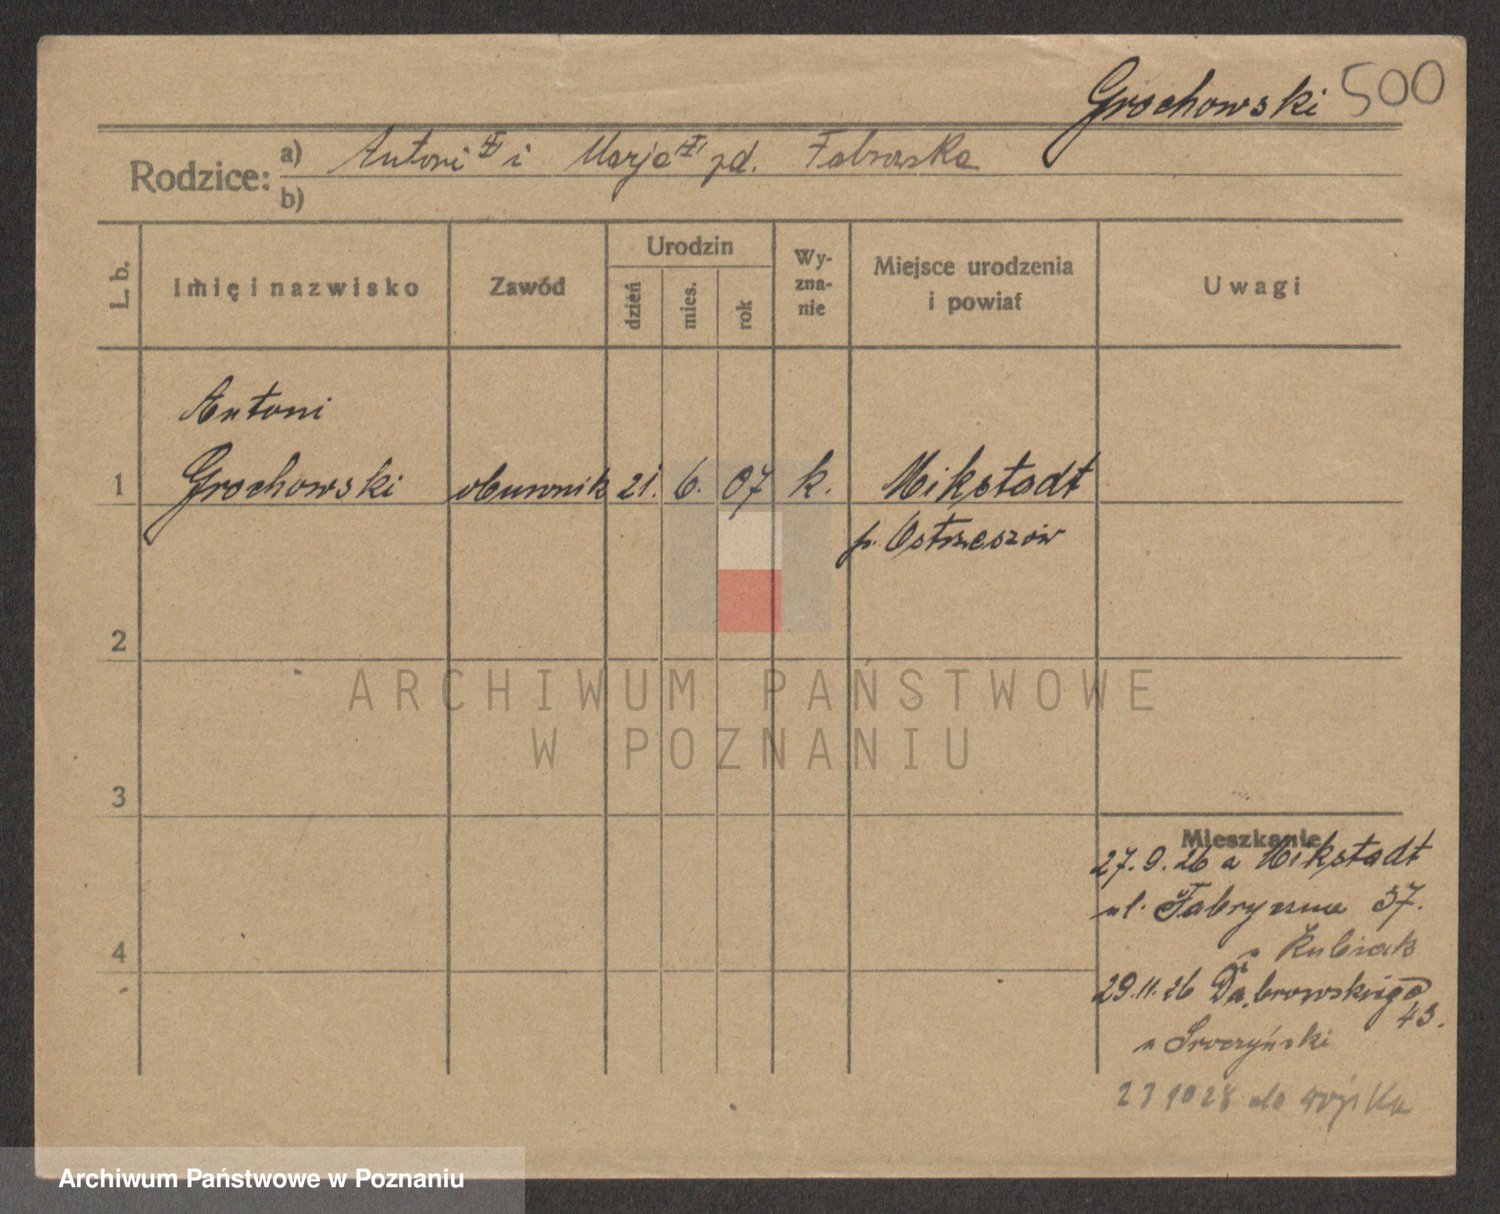 Grochowski 500
Rodzice: a) Antoni i Marja zd. Fabrowska
b)
L. b. Imię i nazwisko Zawód Urodzin dzień mies. rok Wyznanie Miejsce urodzenia i powiat Uwagi
Antoni
1 Grochowski obuwnik 21. 6. 07 k. Mikstadt
p. Ostrzeszów
2
ARCHIWUM PAŃSTWOWE
W POZNANIU
3
Mieszkanie
27.9.26 a Mikstadt
ul. Fabryczna 37.
Kubiak
4
29.11.26 Dąbrowskiego
43.
Sroczyński
23 10 28 do wojska
Archiwum Państwowe w Poznaniu